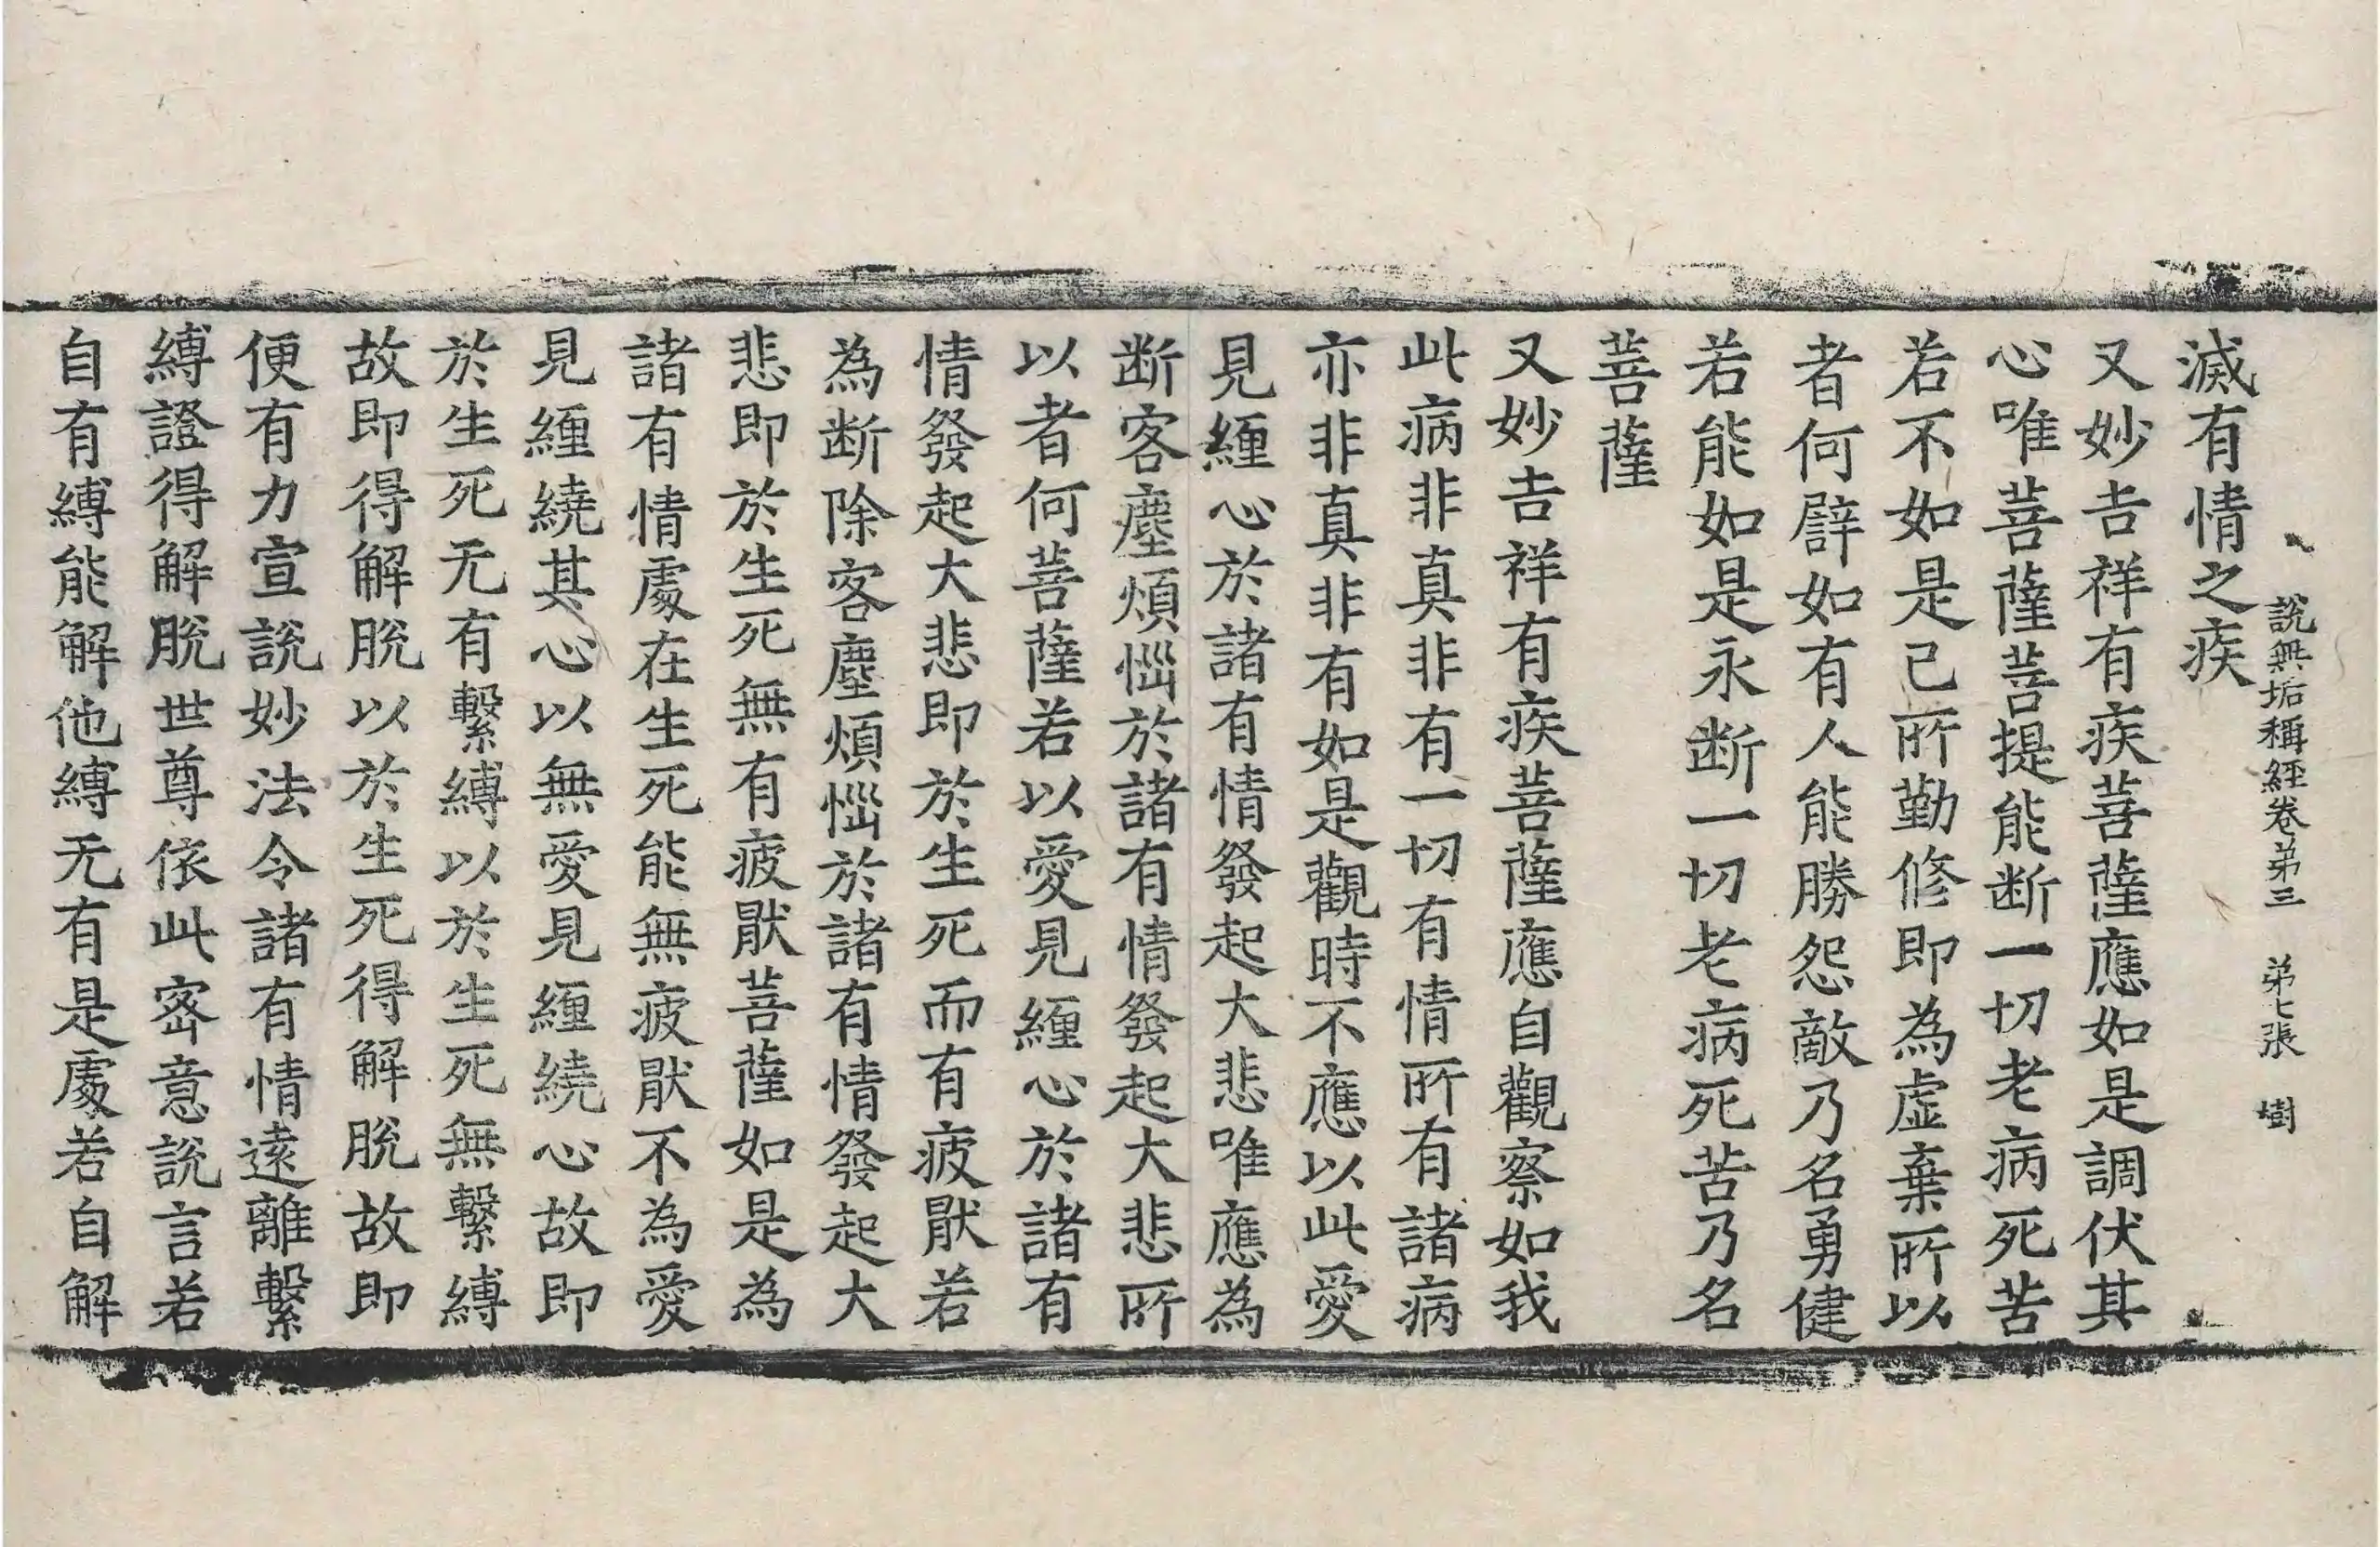 說無垢稱經卷第三　第七張　樹
滅有情之疾
又妙吉祥有疾菩薩應如是調伏其
心唯菩薩菩提能断一切老病死苦
若不如是己所勤修即為虛棄所以
者何譬如有人能勝怨敵乃名勇健
若能如是永断一切老病死苦乃名
菩薩
又妙吉祥有疾菩薩應自觀察如我
此病非真非有一切有情所有諸病
亦非真非有如是觀時不應以此愛
見纏心於諸有情發起大悲唯應為
断客塵煩惱於諸有情發起大悲所
以者何菩薩若以愛見纏心於諸有
情發起大悲即於生死而有疲厭若
為断除客塵煩惱於諸有情發起大
悲即於生死無有疲厭菩薩如是為
諸有情處在生死能無疲厭不為愛
見纏繞其心以無愛見纏繞心故即
於生死无有繫縛以於生死無繫縛
故即得解脫以於生死得解脫故即
便有力宣說妙法令諸有情遠離繫
縛證得解脫世尊依此密意說言若
自有縛能解他縛无有是處若自解